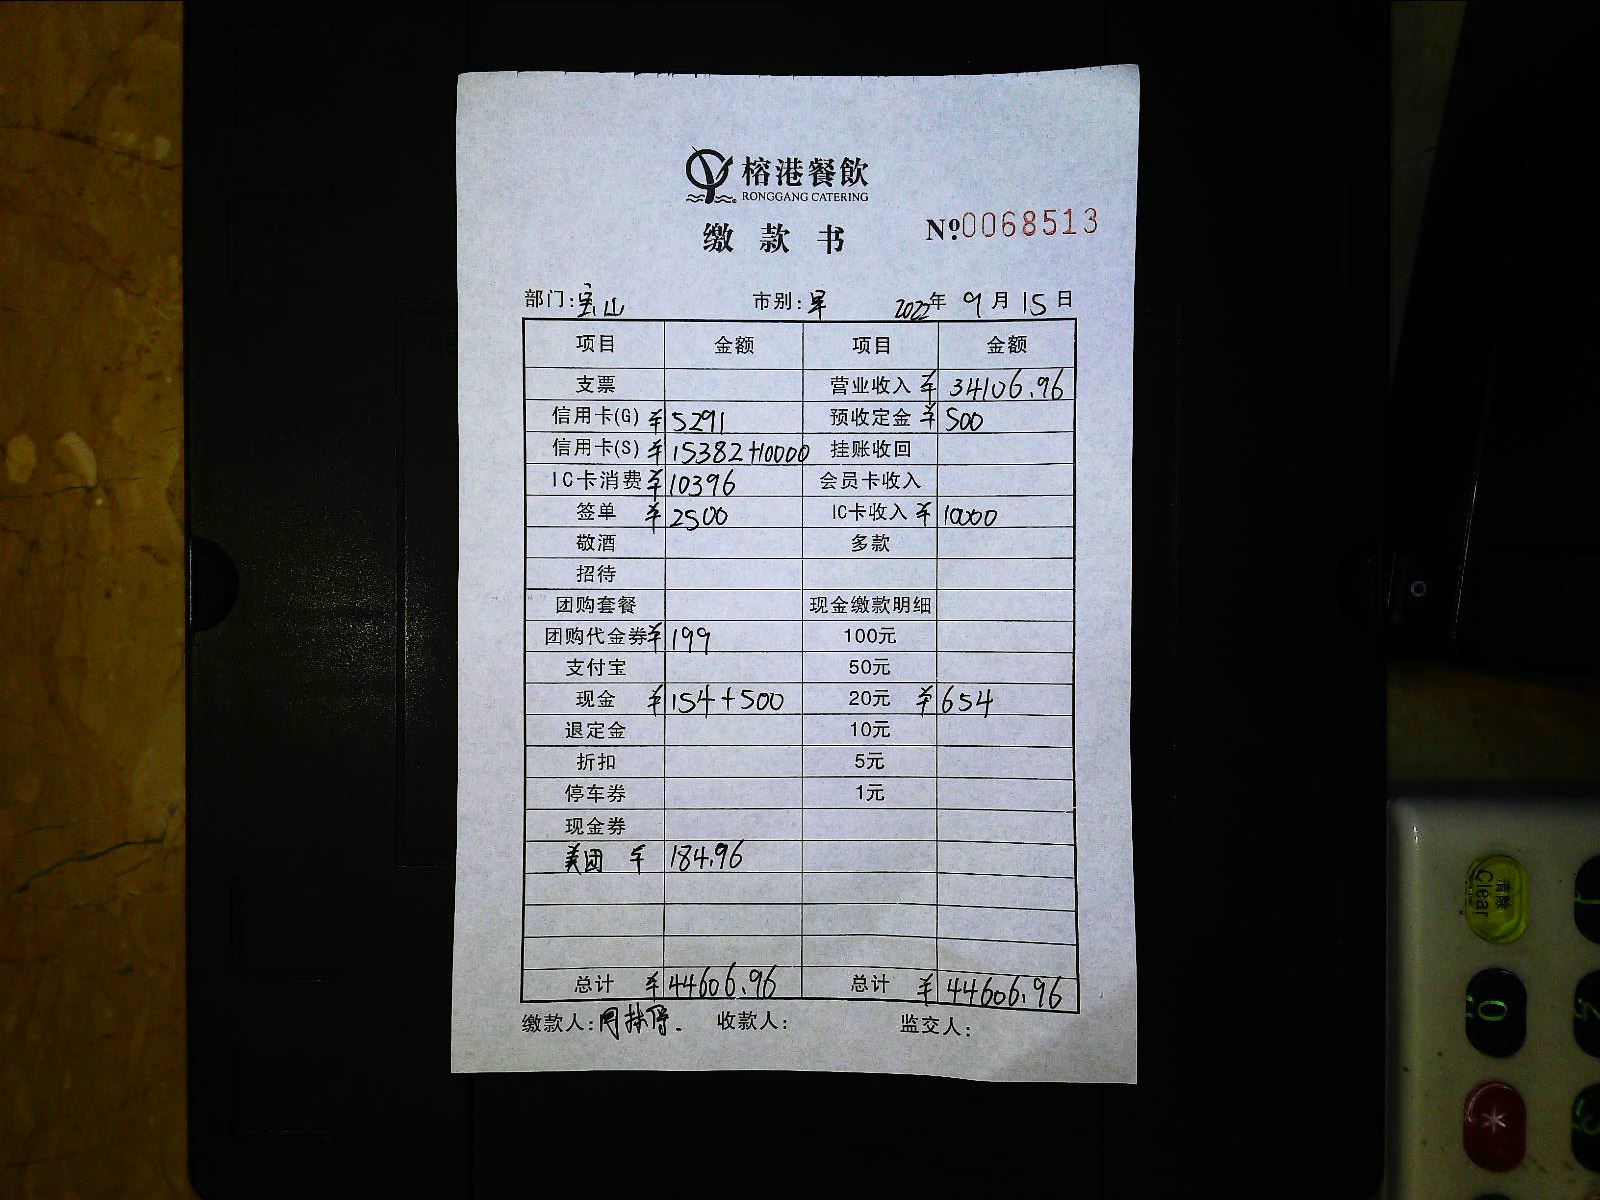 榕港餐飲
RONGGANG CATERING
缴款书
№0068513
部门:宝山 市别:早 2022年 9月 15日
项目 金额 项目 金额
支票 营业收入 ¥ 34106.96
信用卡(G) ¥ 5291 预收定金 ¥ 500
信用卡(S) ¥ 15382+10000 挂账收回
IC卡消费 ¥ 10396 会员卡收入
签单 ¥ 2500 IC卡收入 ¥ 10000
敬酒 多款
招待
团购套餐 现金缴款明细
团购代金券 ¥ 199 100元
支付宝 50元
现金 ¥ 154+500 20元 ¥ 654
退定金 10元
折扣 5元
停车券 1元
现金券
美团 ¥ 184.96
总计 ¥ 44606.96 总计 ¥ 44606.96
缴款人: 收款人: 监交人:
清除
Clear
0
*